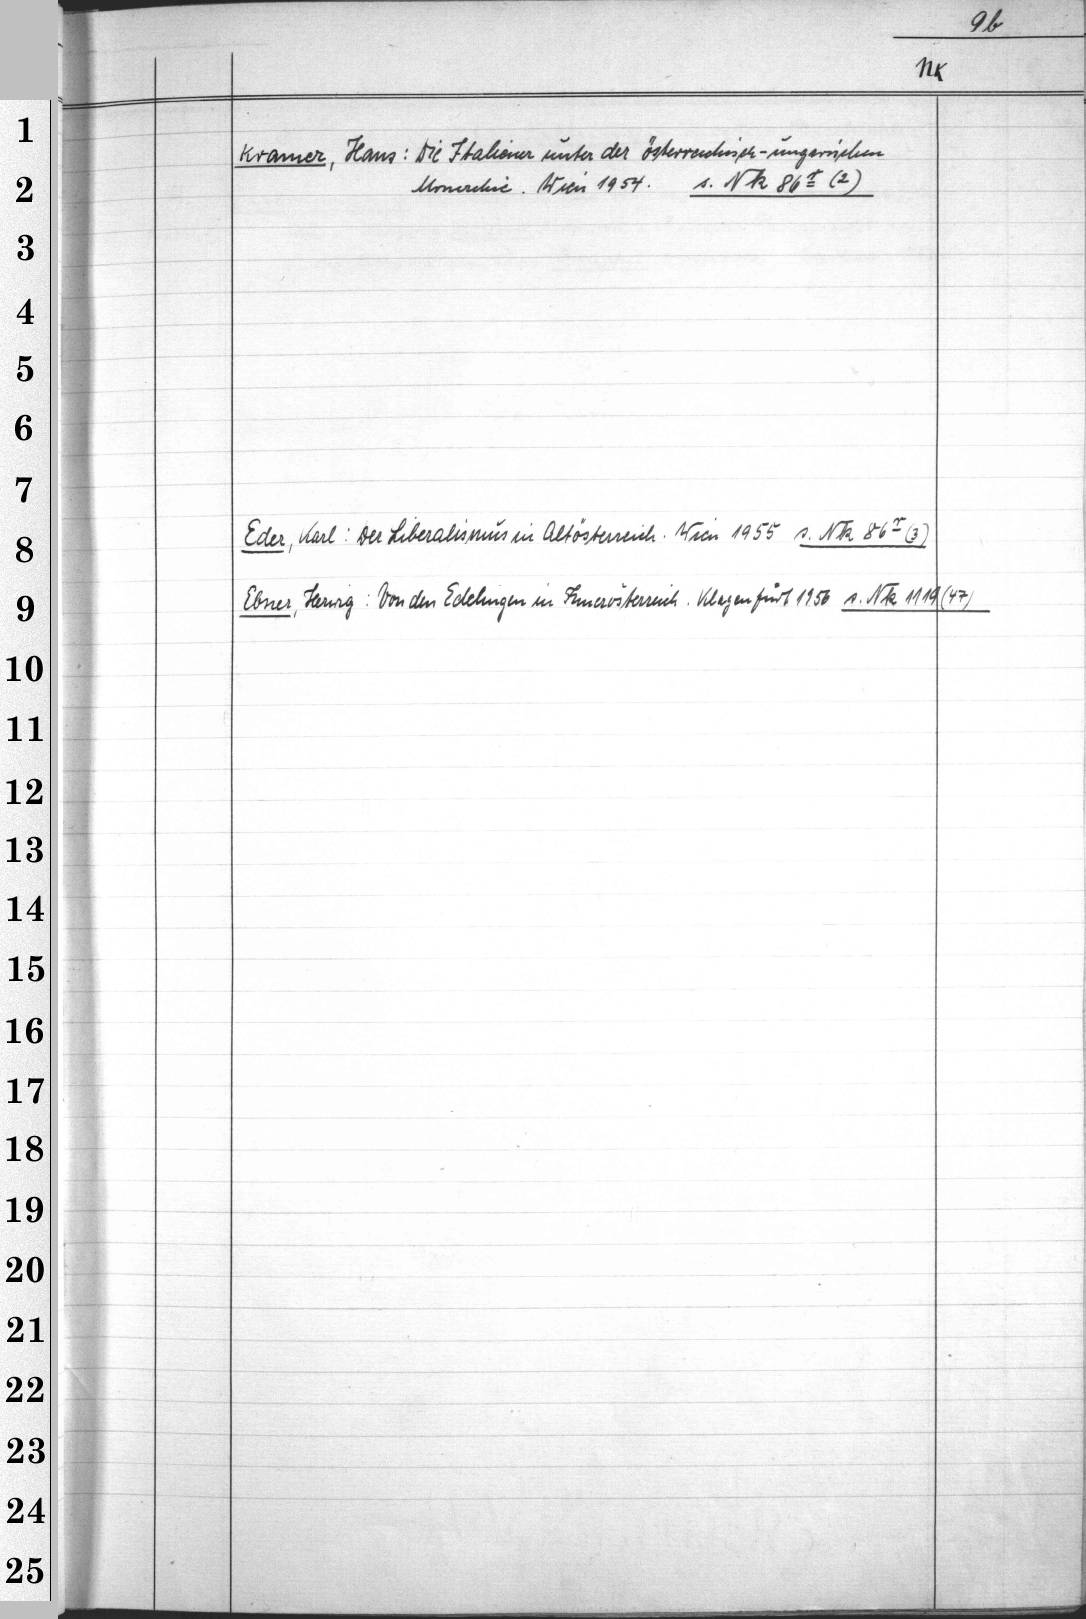 9b
NK
1
Kramer, Hans: Die Italiener unter der österreichisch-ungarischen
2
Monarchie. Wien 1954. s. Nk 86 r (2)
3
4
5
6
7
8
Eder, Karl: Der Liberalismus in Altösterreich. Wien 1955 s. Nk 86 r (3)
9
Ebner, Herwig: Von den Edelingen in Innerösterreich. Klagenfurt 1956 s. Nk 1119 (47)
10
11
12
13
14
15
16
17
18
19
20
21
22
23
24
25